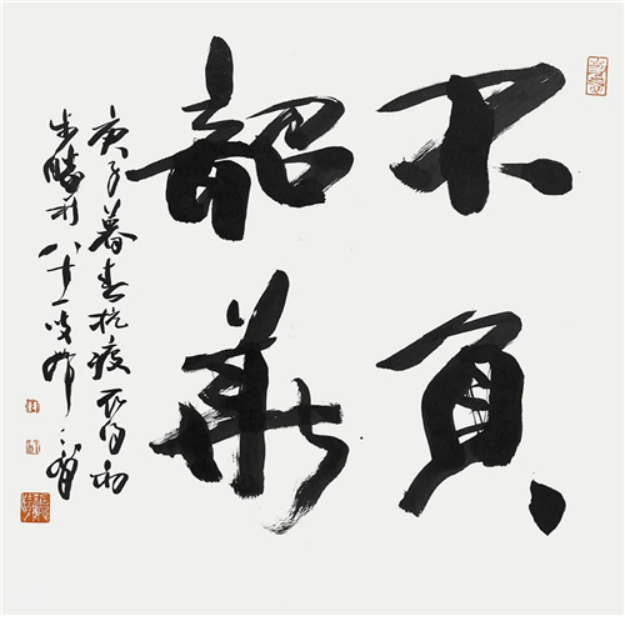 不负
韶华
庚子暮春抗疫取得初
步胜利八十一叟